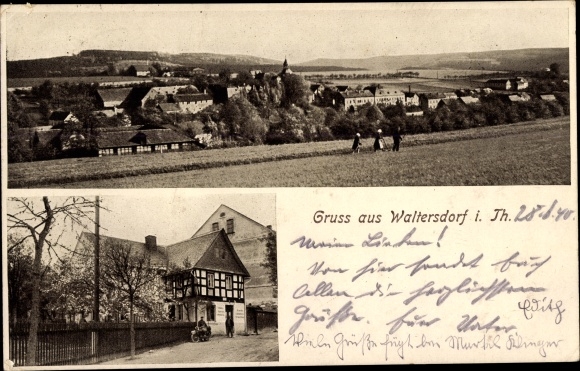 Gruss aus Waltersdorf i. Th. 28.8.40.
Meine Lieben!
Von hier sendet Euch
Allen die herzlichsten
Grüße Euer Vater
Edith
Viele Grüße fügt bei